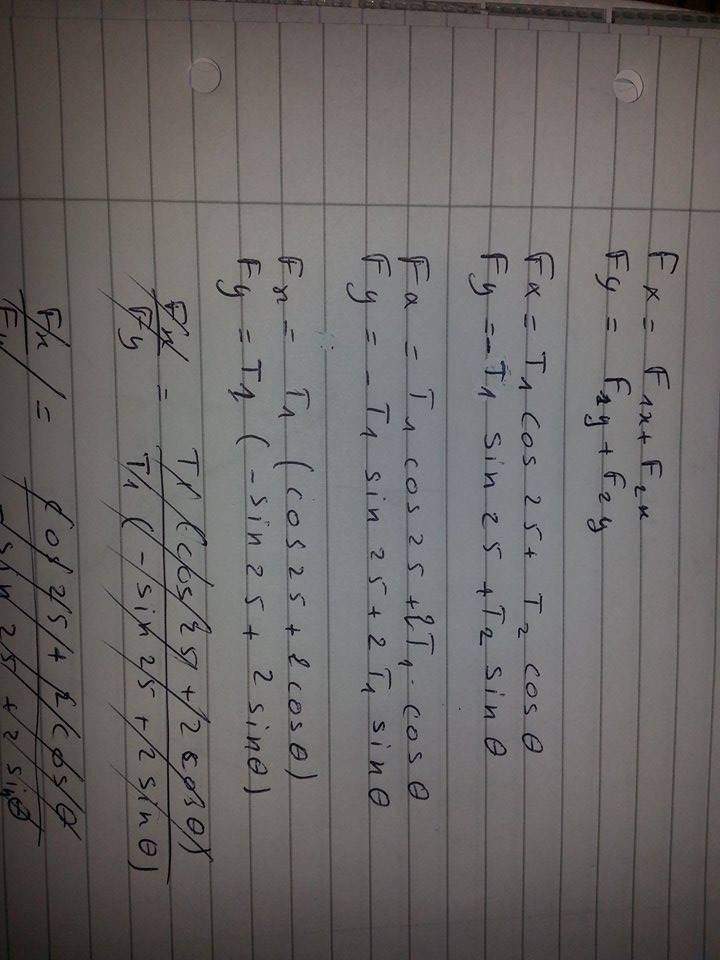 Fx = F1x + F2x
Fy = F1y + F2y
Fx = T1 cos 25 + T2 cos θ
Fy = -T1 sin 25 + T2 sin θ
Fx = T1 cos 25 + 2T1 · cos θ
Fy = -T1 sin 25 + 2T1 sin θ
Fx = T1 (cos 25 + 2 cos θ)
Fy = T1 (-sin 25 + 2 sin θ)
Fx/Fy = T1 (cos 25 + 2 cos θ) / T1 (-sin 25 + 2 sin θ)
Fx/Fy = cos 25 + 2 cos θ / -sin 25 + 2 sin θ